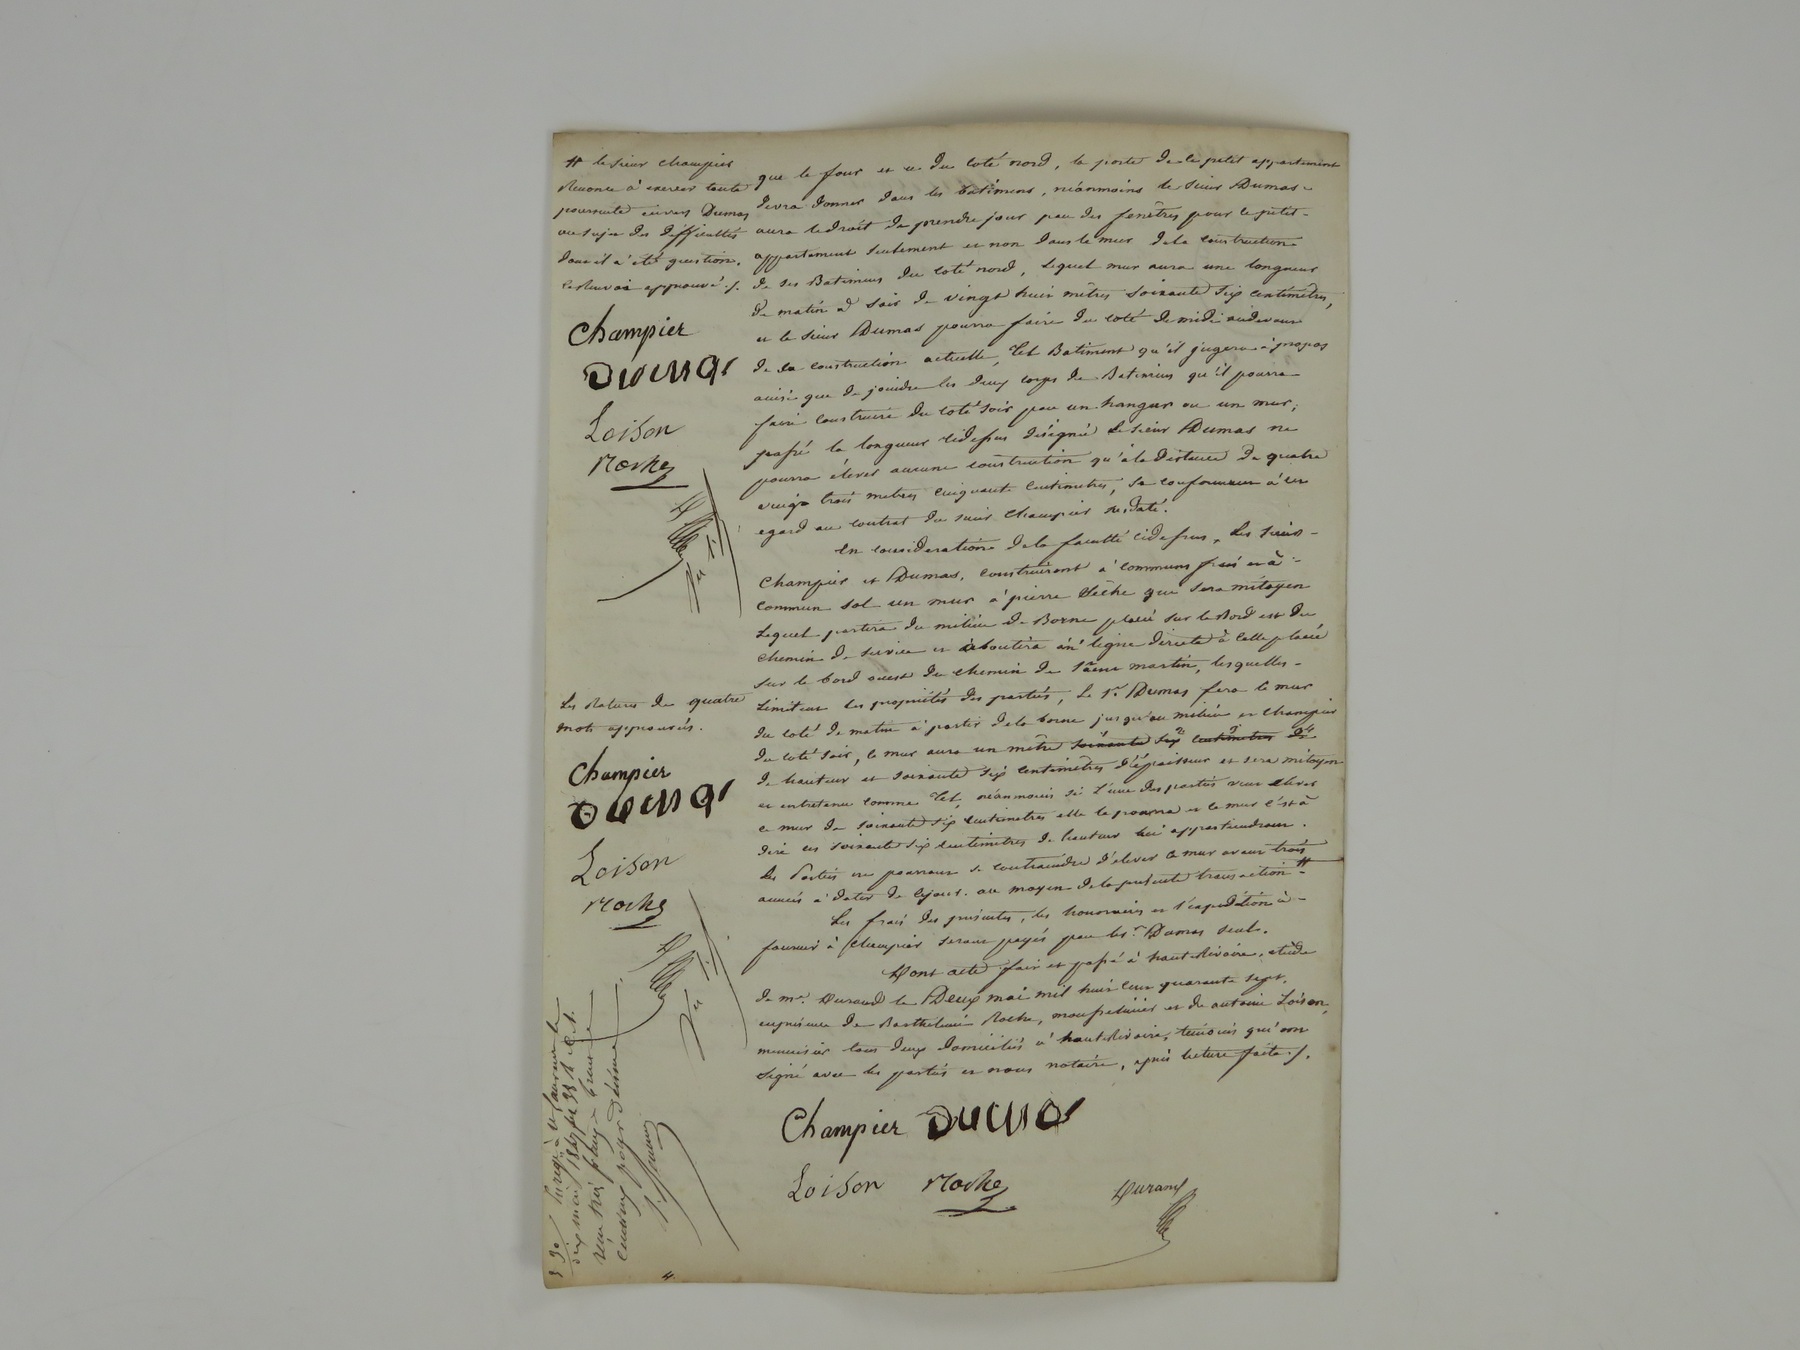 # le sieur Champier
Renonce à exercer toute
poursuite envers Dumas
au sujet des difficultés
dont il a été question.
le Renvoi approuvé ./.
Champier
Dumas
Loison
Roche
Les Ratures de quatre
mots approuvés.
Champier
Dumas
Loison
Roche
que le four et a du coté nord, la porte de le petit appartement
devra donner dans les batimens, néanmoins le sieur Dumas
aura le droit de prendre jour par des fenêtres pour le petit
appartement seulement et non dans le mur de la construction
de ses Batimens du coté nord, lequel mur aura une longueur
de matin à soir de vingt huit mètres soixante six centimètres,
et le sieur Dumas pourra faire du coté de midi au devant
de sa construction actuelle, tel Batiment qu'il jugera à propos
ainsi que de joindre les deux corps de Batimens qu'il pourra
faire construire du coté soir par un hangar ou un mur;
passé la longueur cidessus désignée le sieur Dumas ne
pourra élever aucune construction qu'à la distance de quatre
vingt trois metres cinquante centimetres, se conformer à cet
egard au contrat du sieur Champier susdaté.
En considération de la faculté cidessus, les sieurs
Champier et Dumas, construiront à communs frais et à
commun sol un mur à pierre sèche qui sera mitoyen
lequel partira du milieu de Borne placée sur le Bord est du
chemin de service et aboutira en ligne directe à celle placée
sur le bord ouest du chemin de martin, lesquelles
limitent les propriétés des parties, le Sr. Dumas fera le mur
du coté de matin à partir de la borne jusqu'au milieu et Champier
du coté soir, le mur aura un mètre soixante six centimetres de
de hauteur et soixante six centimètres d'épaisseur et sera mitoyen
et entretenu comme tel, néanmoins si l'une des parties veut élever
ce mur de soixante six centimetres elle le pourra et le mur c'est à
dire ces soixante six centimetres de hauteur lui appartiendront.
Les Parties ne pourront se contraindre d'élever ce mur avant trois
années à dater de ce jour. au moyen de la présente transaction #
Les frais des présentes, les honoraires et l'expédition à
fournir à Champier seront payés par le Sr. Dumas seul.
Dont acte fait et passé à haute Rivoire, étude
de me. Durand le Deux mai mil huit cent quarante sept,
en présence de Barthelemi Roche, et de antoine Loison,
menuisier tous deux domiciliés à haute Rivoire, témoins qui ont
signé avec les parties et nous notaire, après lecture faite ./.
Champier Dumas
Loison Roche Durand
4.